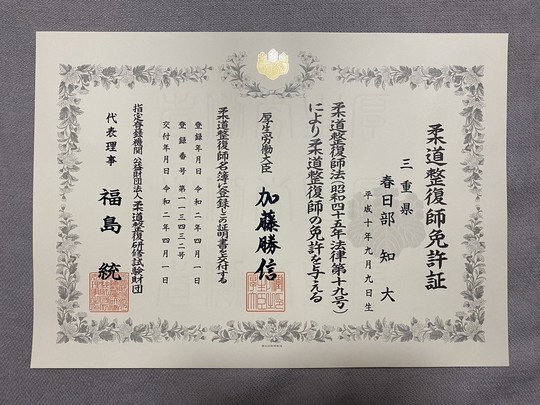 柔道整復師免許証
三重県
春日部 知大
平成十年九月九日生
柔道整復師法(昭和四十五年法律第十九号)
により柔道整復師の免許を与える
厚生労働大臣 加藤勝信
柔道整復師名簿に登録しこの証明書を交付する
登録年月日 令和二年四月一日
登録番号 第一一三四三二号
交付年月日 令和二年四月一日
指定登録機関 公益財団法人柔道整復研修試験財団
代表理事 福島統